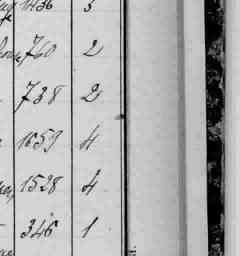 1436 3
760 2
738 2
1659 4
1528 4
346 1